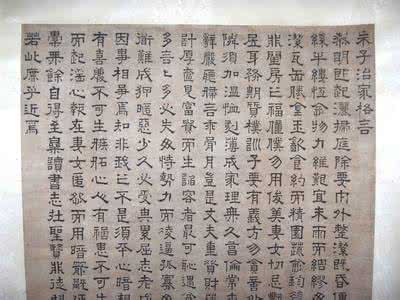 朱子治家格言
黎明即起灑掃庭除要內外整潔既昏便
絲半縷恆念物力維艱宜未雨而綢繆
潔瓦缶勝金玉飲食約而精園蔬愈珍
非閨房之福僮僕勿用俊美妻女切忌艷
居身務期質樸訓子要有義方勿貪意外
鄰須加溫恤刻薄成家理無久享倫常
辭嚴聽婦言乖骨肉豈是丈夫重資財
計厚奩見富貴而生諂容者最可恥遇貧
多言言多必失勿恃勢力而凌逼孤寡
道難成狎暱惡少久必受其累屈志老成
因事相爭焉知非我之不是須平心暗想
有喜慶不可生妒忌心人有禍患不可生
而起淫心報在妻女匿怨而用暗箭禍延
橐無餘自得至樂讀書志在聖賢非徒科
若此庶乎近焉